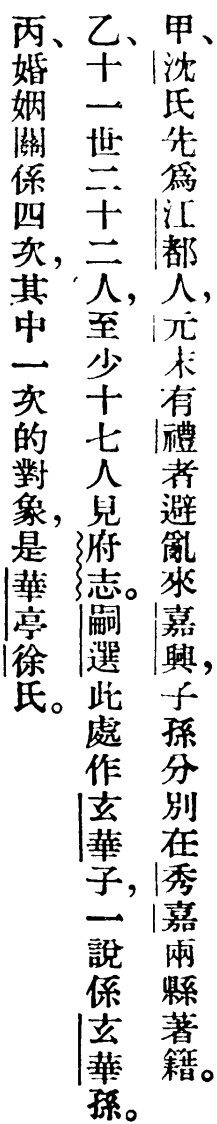 甲、沈氏先爲江都人，元末有禮者避亂來嘉興，子孫分別在秀嘉兩縣著籍。
乙、十一世二十二人，至少十七人見府志。嗣選此處作玄華子，一說係玄華孫。
丙、婚姻關係四次，其中一次的對象，是華亭徐氏。